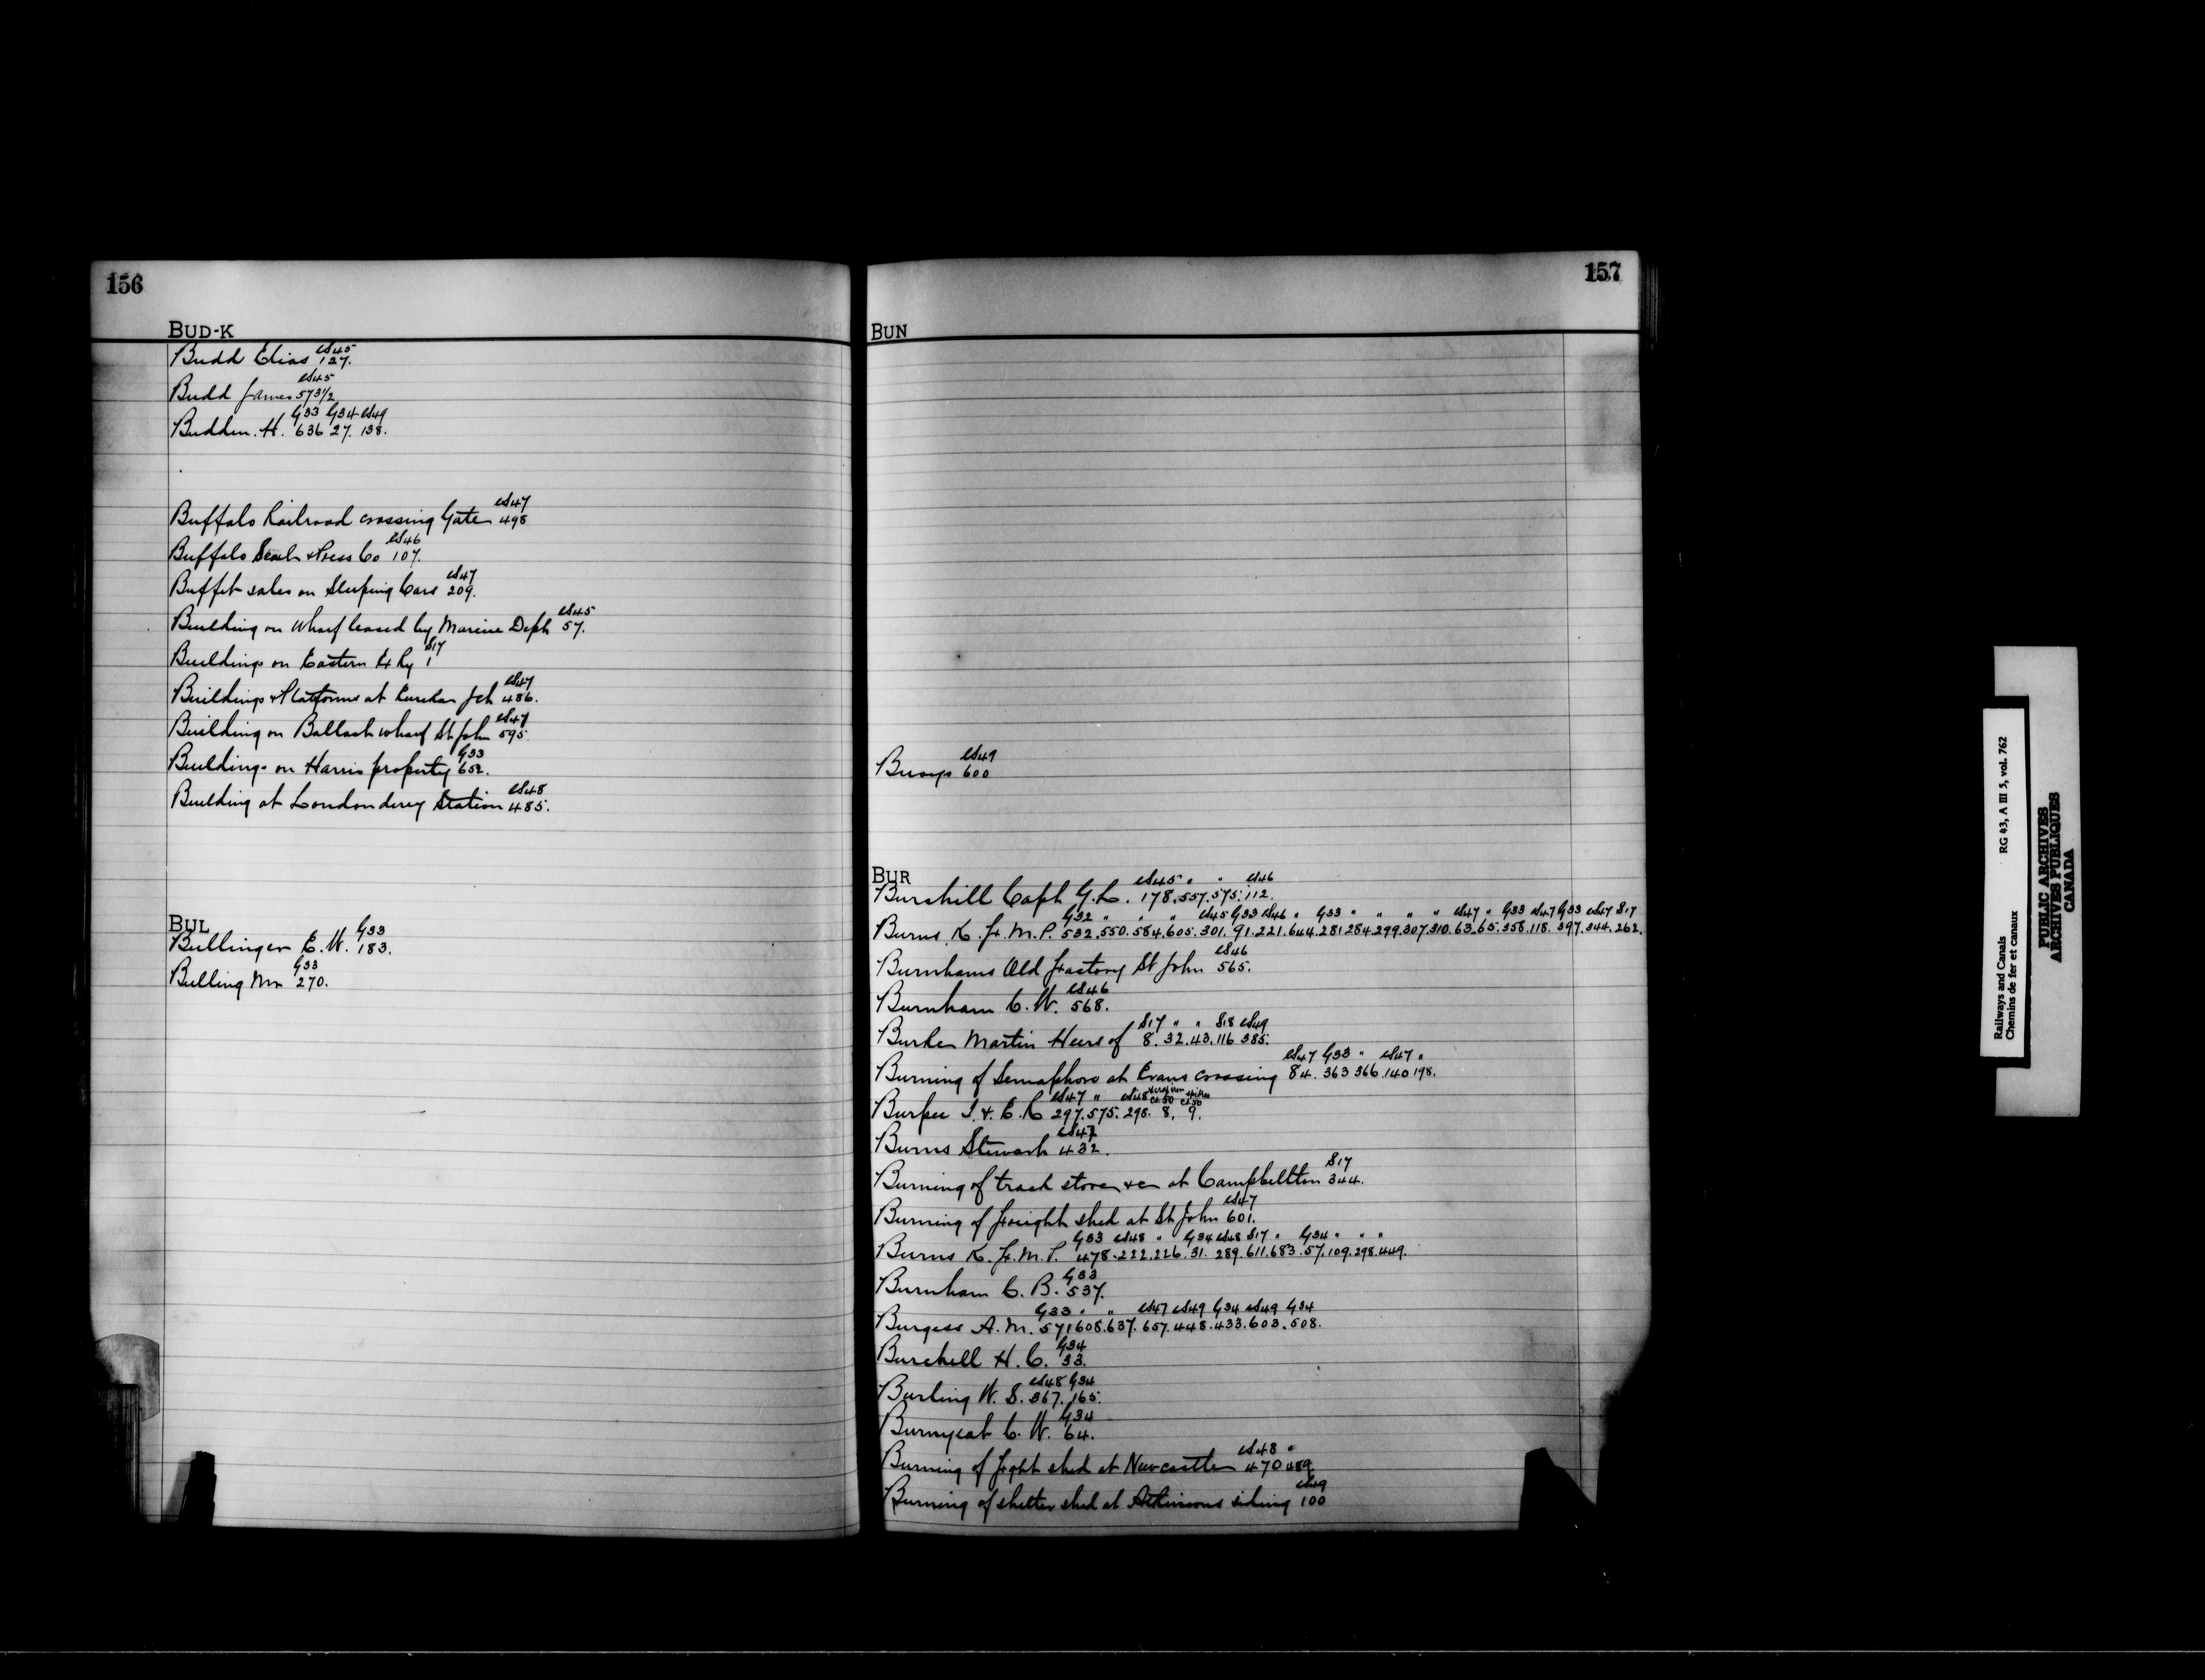 156
BUD-K
Budd Elias 127.
cS45
Budd James 573½
cS45
Budden. H. 636 27. 138.
G33 G34 cS49
Buffalo Railroad crossing Gate 498
cS47
Buffalo Scale & Press Co 107.
cS46
Buffet sales on Sleeping Cars 209.
cS47
Building on Wharf leased by Marine Dept 57.
cS45
Buildings on Eastern Ex Ry 1
S17
Buildings & Platforms at Eureka Jct 486.
cS47
Building on Ballast wharf St John 595.
cS47
Buildings on Harris property 652.
G33
Building at Londonderry Station 485.
cS48
BUL
Bullinger E. W. 183.
G33
Bulling Mr 270.
G33
157
BUN
Buoys 600
cS49
BUR
Burchill Capt G. L. 178. 557. 575. 112.
cS45 " " cS46
Burns K. F. M. P. 532. 550. 584. 605. 301. 91. 221. 644. 281 284. 299. 307. 310. 63. 65. 358. 118. 397. 344. 262.
G32 " " " cS45 G33 cS46 " G33 " " " " cS47 " G33 cS47 G33 cS47 S17
Burnhams Old Factory St John 565.
cS46
Burnham C. W. 568.
cS46
Burke Martin Heirs of 8. 32. 43. 116 385.
S17 " " S18 cS49
Burning of Semaphore at Evans crossing 84. 363 366. 140 198.
cS47 G33 " cS47 "
Burpee I. & E. R 297. 575. 298. 8. 9.
cS47 " cS48 Ct 50 Ct 50
Burns Stewart 432.
cS47
Burning of track store &c at Campbellton 344.
S17
Burning of freight shed at St John 601.
cS47
Burns K. F. M. P. 478. 222. 226. 31. 289. 611. 683. 57. 109. 298. 449.
G33 cS48 " G34 cS48 S17 " G34 " " "
Burnham C. B. 537.
G33
Burgess A. M. 571 608. 637. 657. 448. 433. 603. 508.
G33 " " cS47 cS49 G34 cS49 G34
Burchell H. C. 33.
G34
Burling W. S. 367. 165.
cS48 G34
Burnyeat C. W. 64.
G34
Burning of frght shed at Newcastle 470 489.
cS48 "
Burning of shelter shed at Atkinsons siding 100
cS49
Railways and Canals RG 43, A III 5, vol. 762
Chemins de fer et canaux
PUBLIC ARCHIVES
ARCHIVES PUBLIQUES
CANADA